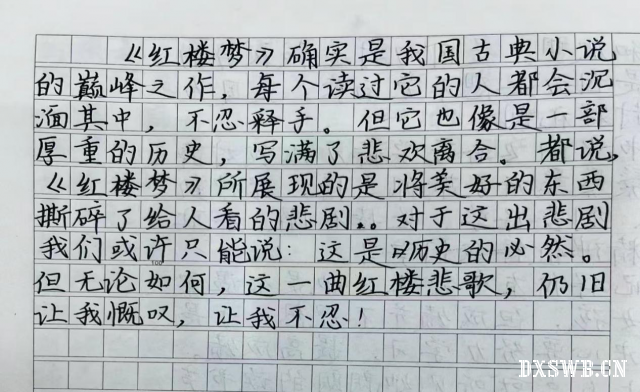 《红楼梦》确实是我国古典小说
的巅峰之作，每个读过它的人都会沉
湎其中，不忍释手。但它也像是一部
厚重的历史，写满了悲欢离合。都说，
《红楼梦》所展现的是将美好的东西
撕碎了给人看的悲剧。。对于这出悲剧
我们或许只能说：这是以历史的必然。
100
但无论如何，这一曲红楼悲歌，仍旧
让我慨叹，让我不忍！
DXSWB.CN